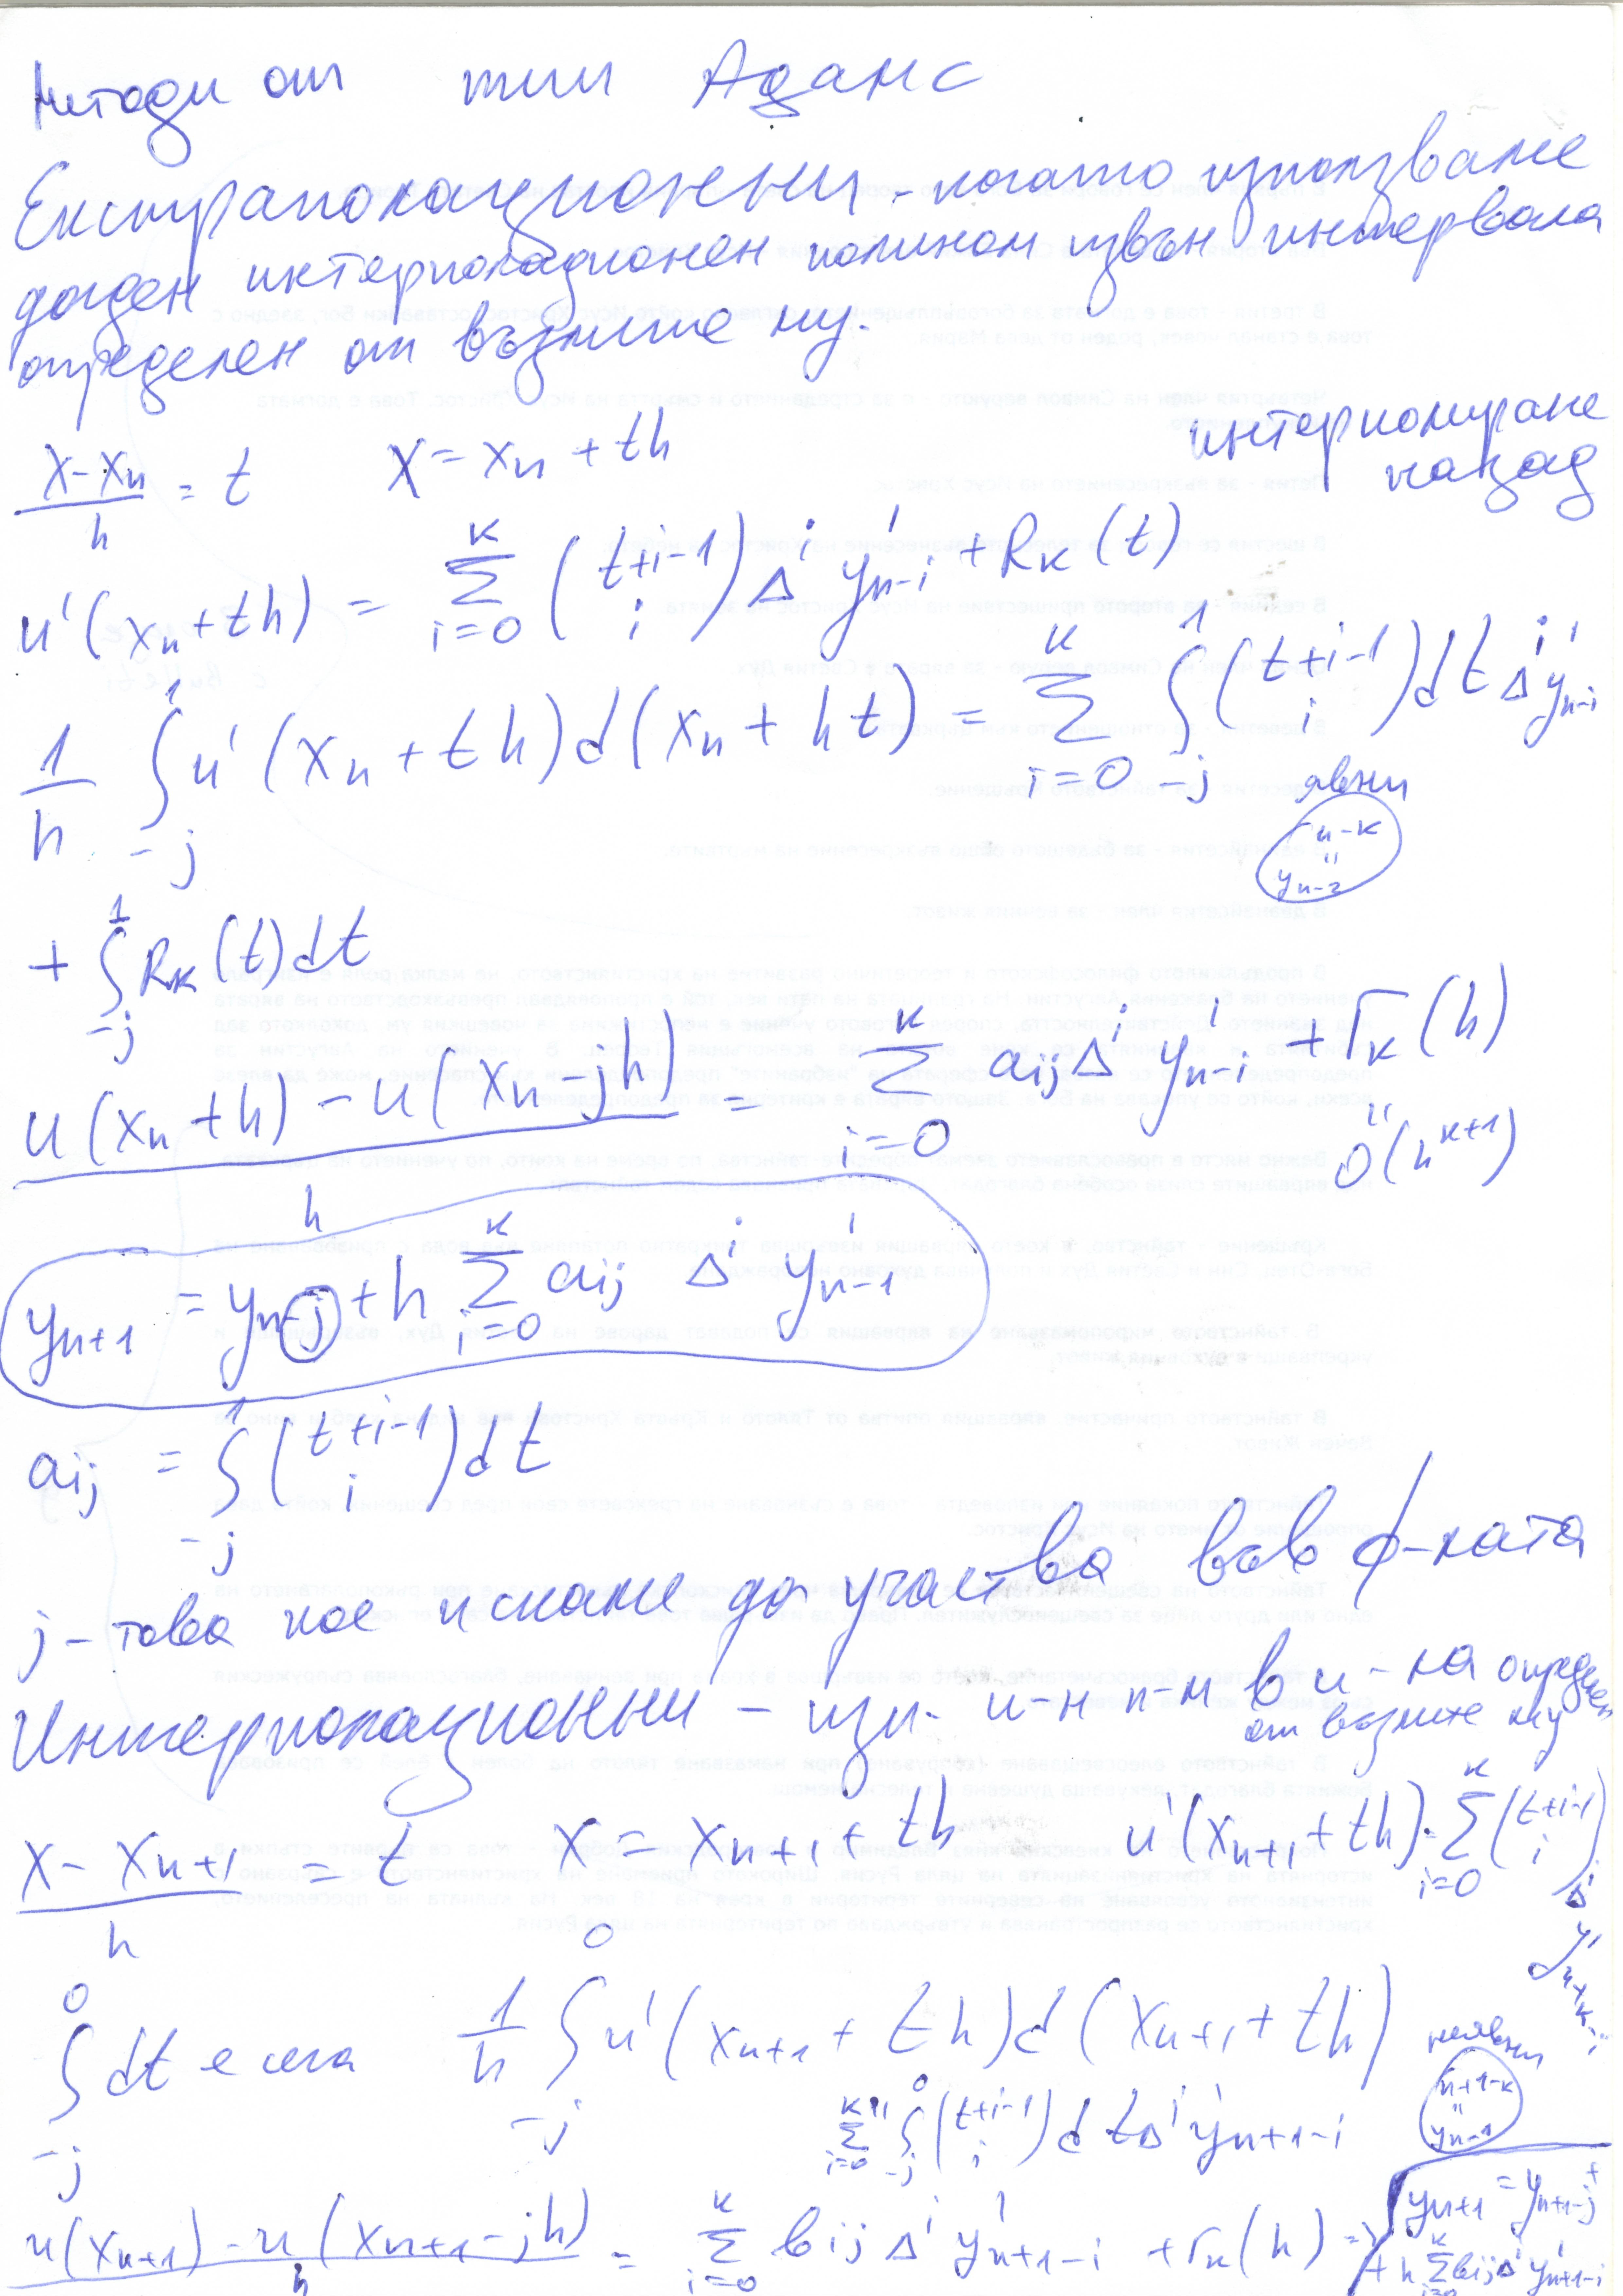 Методи от тип Адамс
Екстраполационни - когато използваме
даден интерполационен полином извън интервала
определен от възлите му.
(x-xn)/h = t   x = xn + th   интерполиране назад
u'(xn+th) = Σ_{i=0}^{k} (t+i-1 над i) Δ^i y'n-i + Rk(t)
1/h ∫_{-j}^{1} u'(xn+th)d(xn+ht) = Σ_{i=0}^{k} ∫_{-j}^{1} (t+i-1 над i)dt Δ^i y'n-i
явни
n-k
"
yn-2
+ ∫_{-j}^{1} Rk(t)dt
(u(xn+h) - u(xn-jh))/h = Σ_{i=0}^{k} aij Δ^i y'n-i + rk(h)
"
O(h^{k+1})
yn+1 = yn-j + h Σ_{i=0}^{k} aij Δ^i y'n-1
aij = ∫_{-j}^{1} (t+i-1 над i)dt
j - това кое искаме да участва във ф-лата
Интерполационни - изп. и-н п-м в и-ла определен
от възлите му
(x-xn+1)/h = t   x = xn+1 + th   u'(xn+1+th) = Σ_{i=0}^{k} (t+i-1 над i) Δ^i y'n+1-i
∫_{-j}^{0} dt е сега   1/h ∫_{-j}^{0} u'(xn+1+th)d(xn+1+th)
неявни
n+1-k
"
yn-1
"
Σ_{i=0}^{k} ∫_{-j}^{0} (t+i-1 над i)dt Δ^i y'n+1-i
(u(xn+1) - u(xn+1-jh))/h = Σ_{i=0}^{k} bij Δ^i y'n+1-i + rk(h) =>
yn+1 = yn+1-j +
+ h Σ_{i=0}^{k} bij Δ^i y'n+1-i